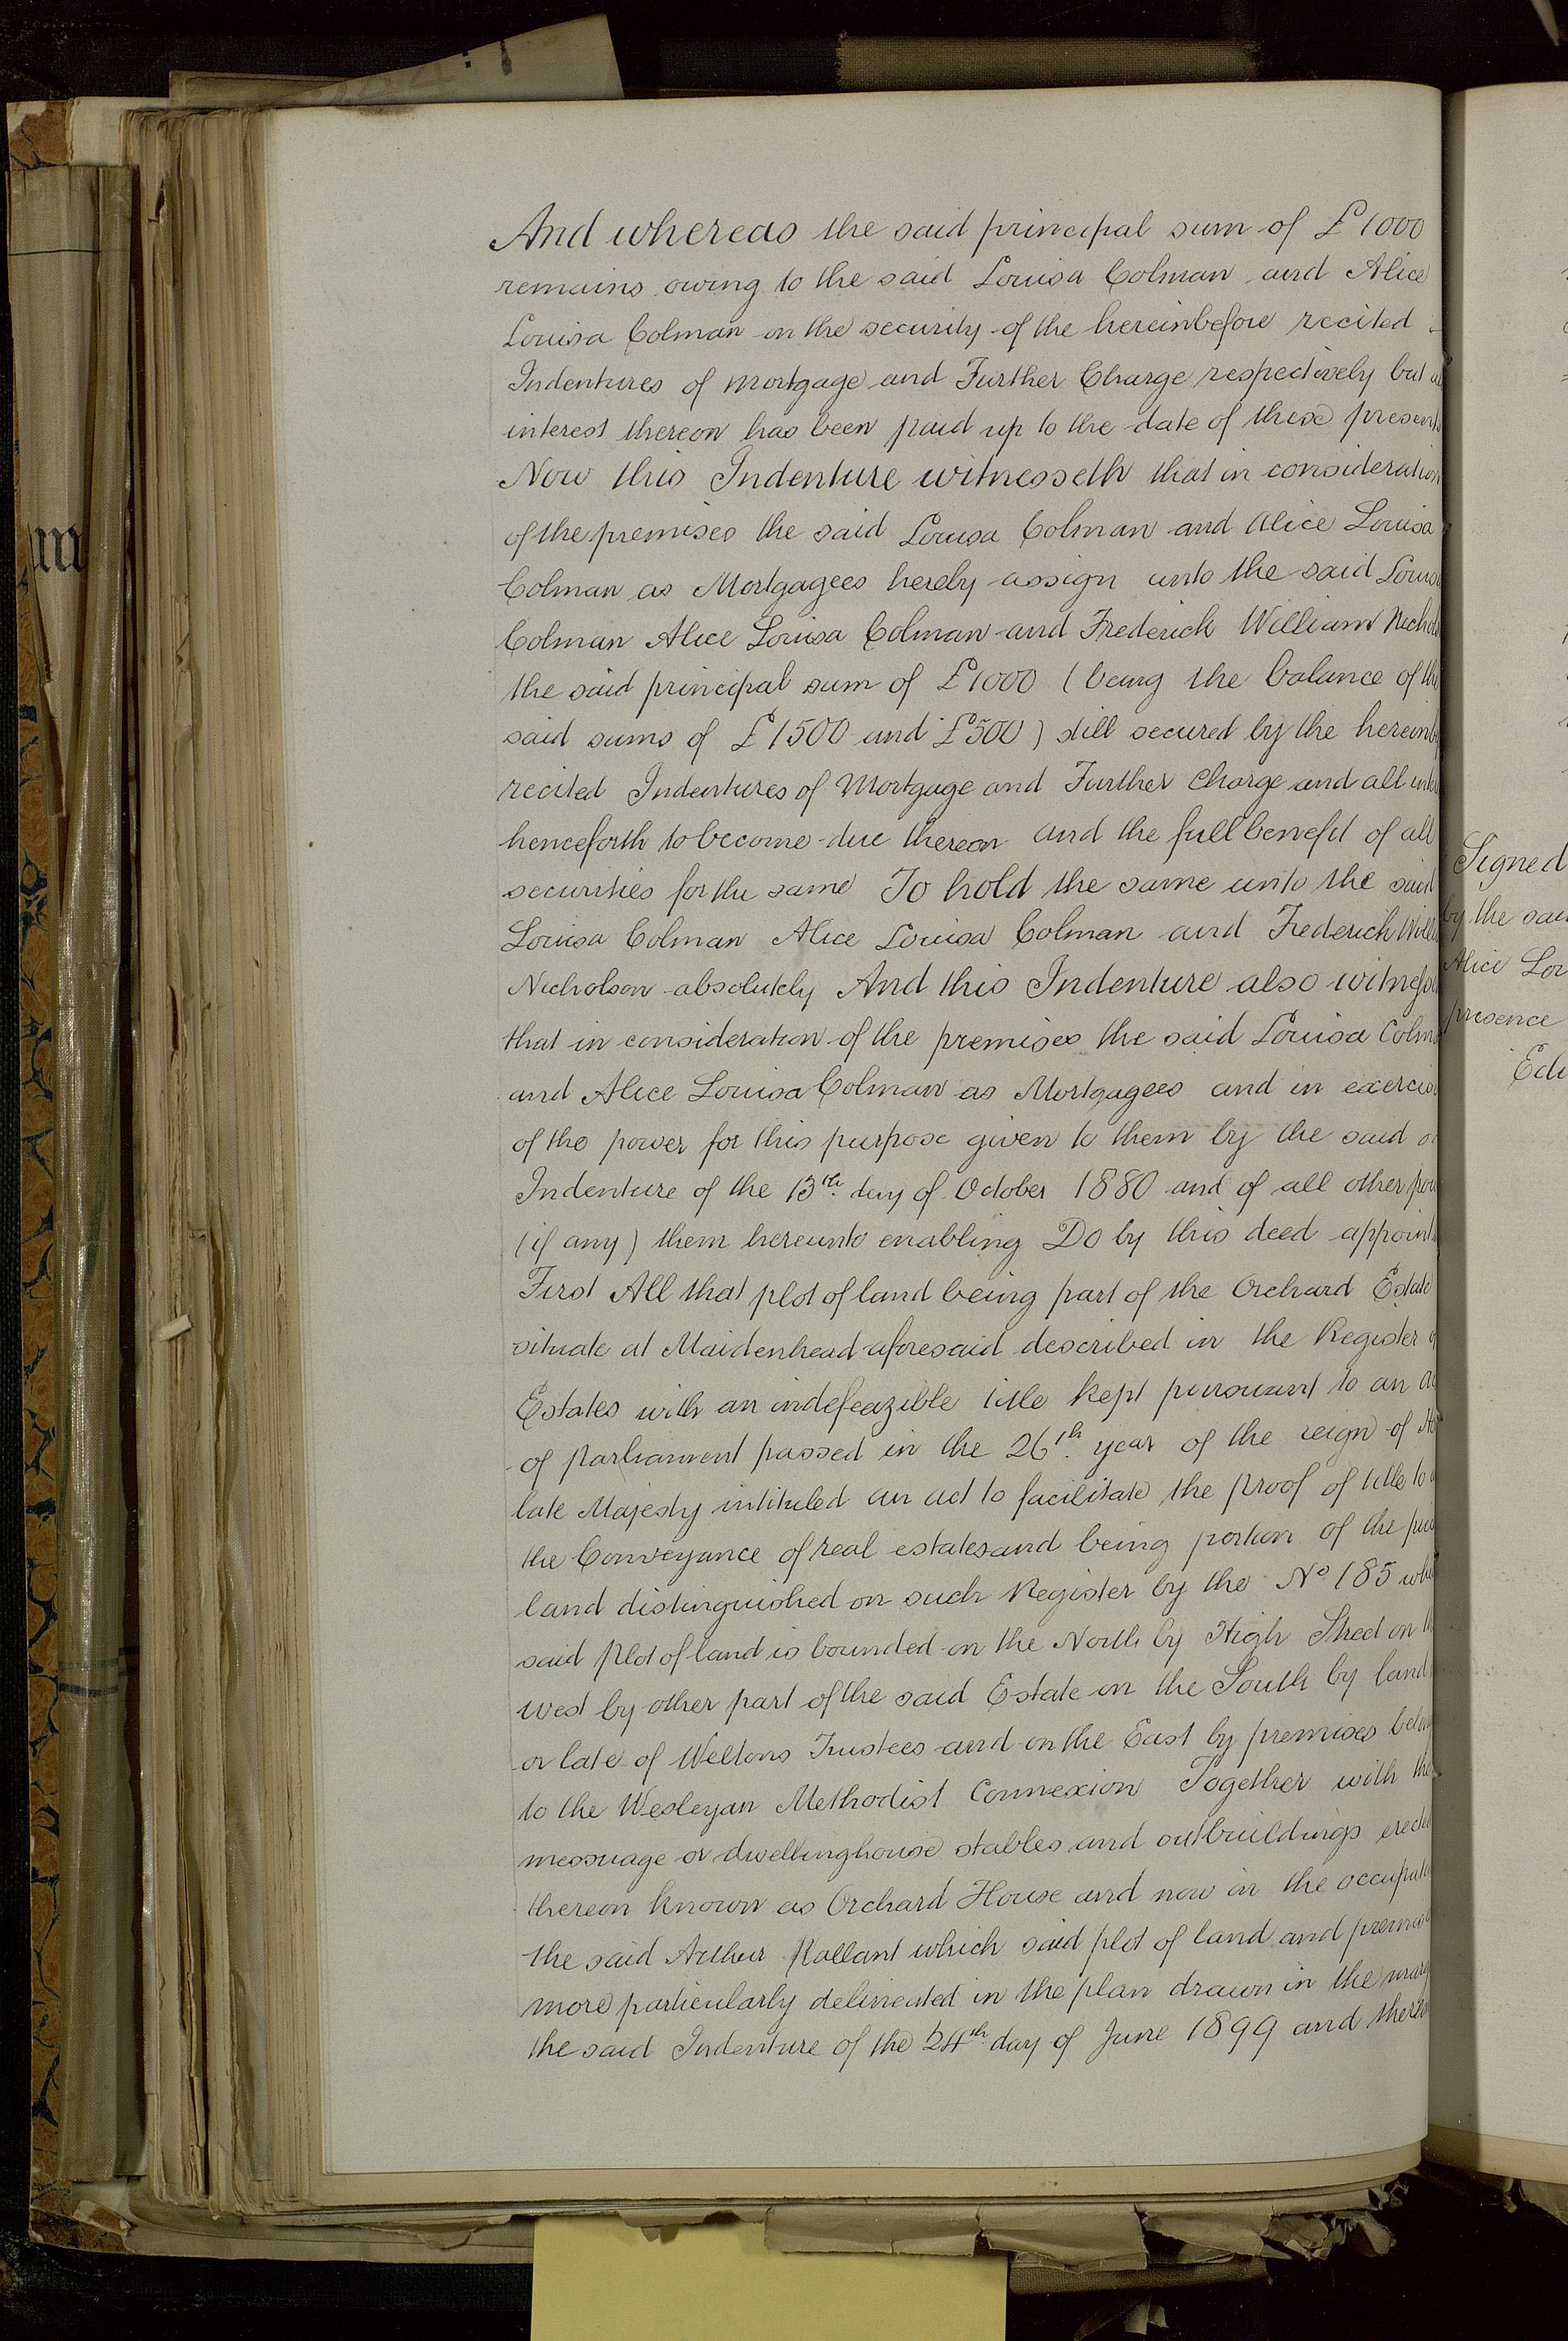 And whereas the said principal sum of £1000
remains owing to the said Louisa Colman and Alice
Louisa Colman on the security of the hereinbefore recited
Indentures of mortgage and Further Charge respectively but
interest thereon has been paid up to the date of these presents
Now this Indenture witnesseth that in consideration
of the premises the said Louisa Colman and Alice Louisa
Colman as Mortgagees hereby assign unto the said Louisa
Colman Alice Louisa Colman and Frederick William Nichol
the said principal sum of £1000 (being the balance of the
said sums of £1500 and £500) still secured by the hereinb
recited Indentures of Mortgage and Further Charge and all inte
henceforth to become due thereon and the full benefit of all
securities for the same To hold the same unto the said
Louisa Colman Alice Louisa Colman and Frederick Will
Nicholson absolutely And this Indenture also witness
that in consideration of the premises the said Louisa Colm
and Alice Louisa Colman as Mortgagees and in exercis
of the power for this purpose given to them by the said
Indenture of the 13th. day of October 1880 and of all other pow
(if any) them hereunto enabling Do by this deed appoint
First All that plot of land being part of the Orchard Estate
situate at Maidenhead aforesaid described in the Register
Estates with an indefeazible title kept pursuant to an
of Parliament passed in the 26th. year of the reign of
late Majesty intituled an act to facilitate the proof of title to
the Conveyance of real estates and being portion of the
land distinguished on such Register by the No 185 whi
said plot of land is bounded on the North by High Street on
west by other part of the said Estate on the South by land
or late of Weltons Trustees and on the East by premises belong
to the Wesleyan Methodist Connexion Together with the
messuage or dwellinghouse stables and outbuildings erected
thereon known as Orchard House and now in the occupati
the said Arthur Rallant which said plot of land and premis
more particularly delineated in the plan drawn in the marg
the said Indenture of the 24th day of June 1899 and there
Signed
by the sai
Alice Lou
presence
Edi